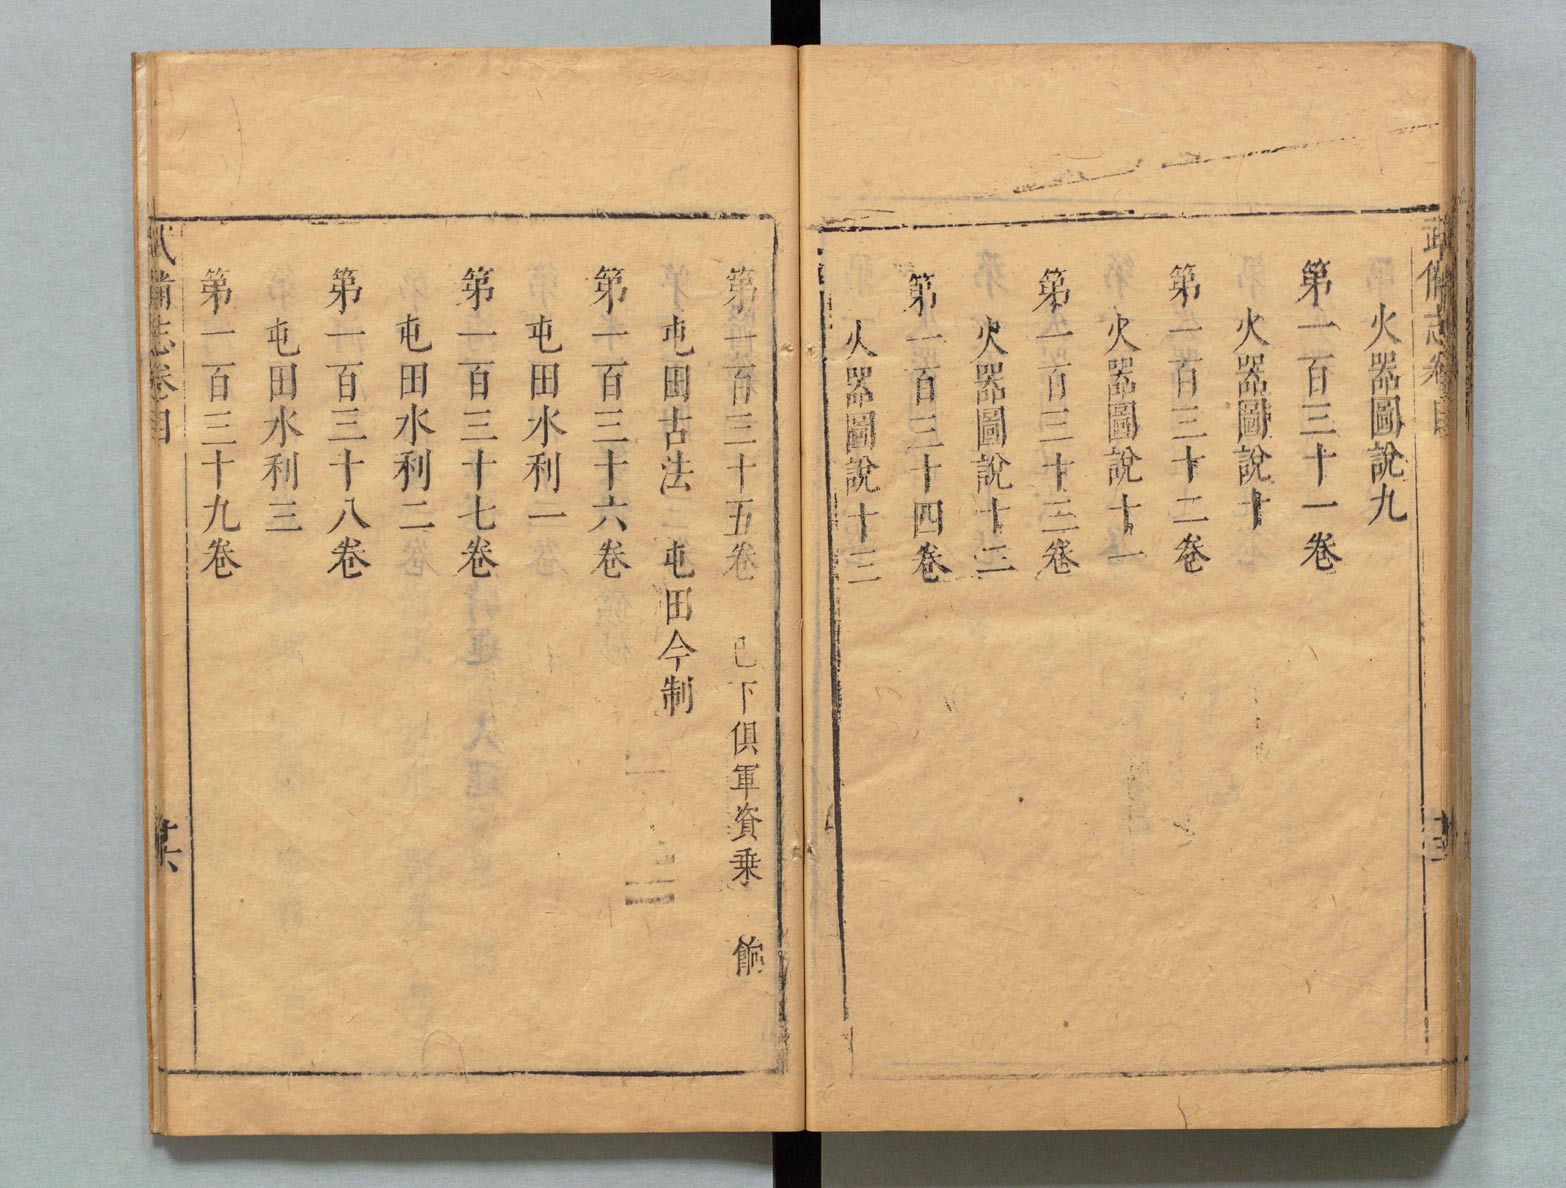 武備志卷目
火器圖說九
第一百三十一卷
火器圖說十
第一百三十二卷
火器圖說十一
第一百三十三卷
火器圖說十二
第一百三十四卷
火器圖說十三
第一百三十五卷 已下俱軍資乘 餉
屯田古法 屯田今制
第一百三十六卷
屯田水利一
第一百三十七卷
屯田水利二
第一百三十八卷
屯田水利三
第一百三十九卷
武備志卷目